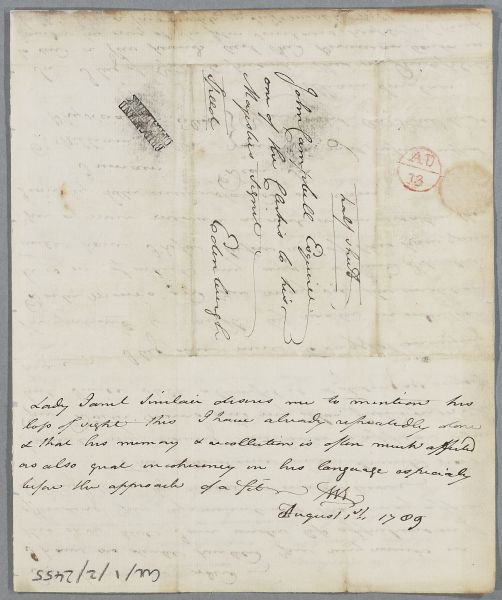 half sheet
John Campbell Esquire
one of the Clerks to his
Majesties Signet
Edinburgh
Speed
AU
13
Lady Janet Sinclair desires me to mention his
loss of sight this I have already repeatedly done
& that his memory & recollection is often much affected
as also great incoherency in his language especialy
before the approach of a fit
August 1st, 1789
GU/1/2/2455